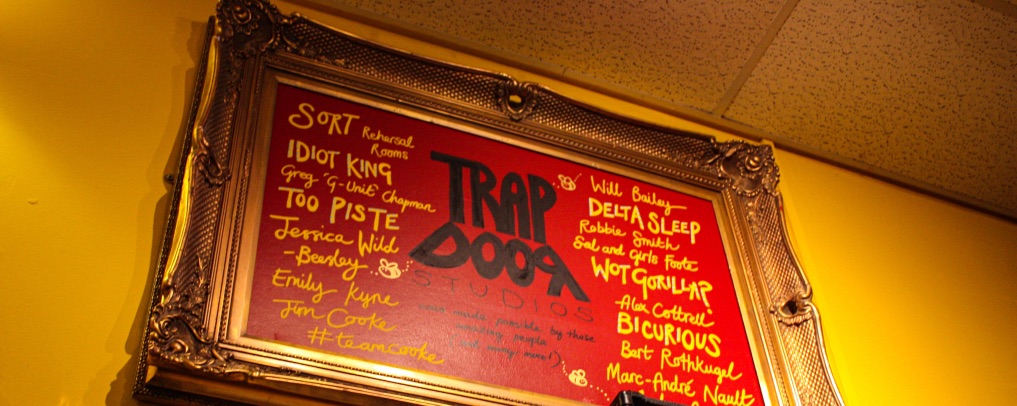 SORT Rehersal
Rooms
IDIOT KING
Greg "G-Unit" Chapman
TOO PISTE
Jessica Wild
-Beesley
Emily Kyne
Jim Cooke
#teamcooke
TRAP
DOOR
STUDIOS
made possible by these
amazing people
many more!)
Will Bailey
DELTA SLEEP
Robbie Smith
Sal and Girls Foote
WOT GORILLA?
Alex Cottrell
BICURIOUS
Bert Rothkugel
Marc-André Nault